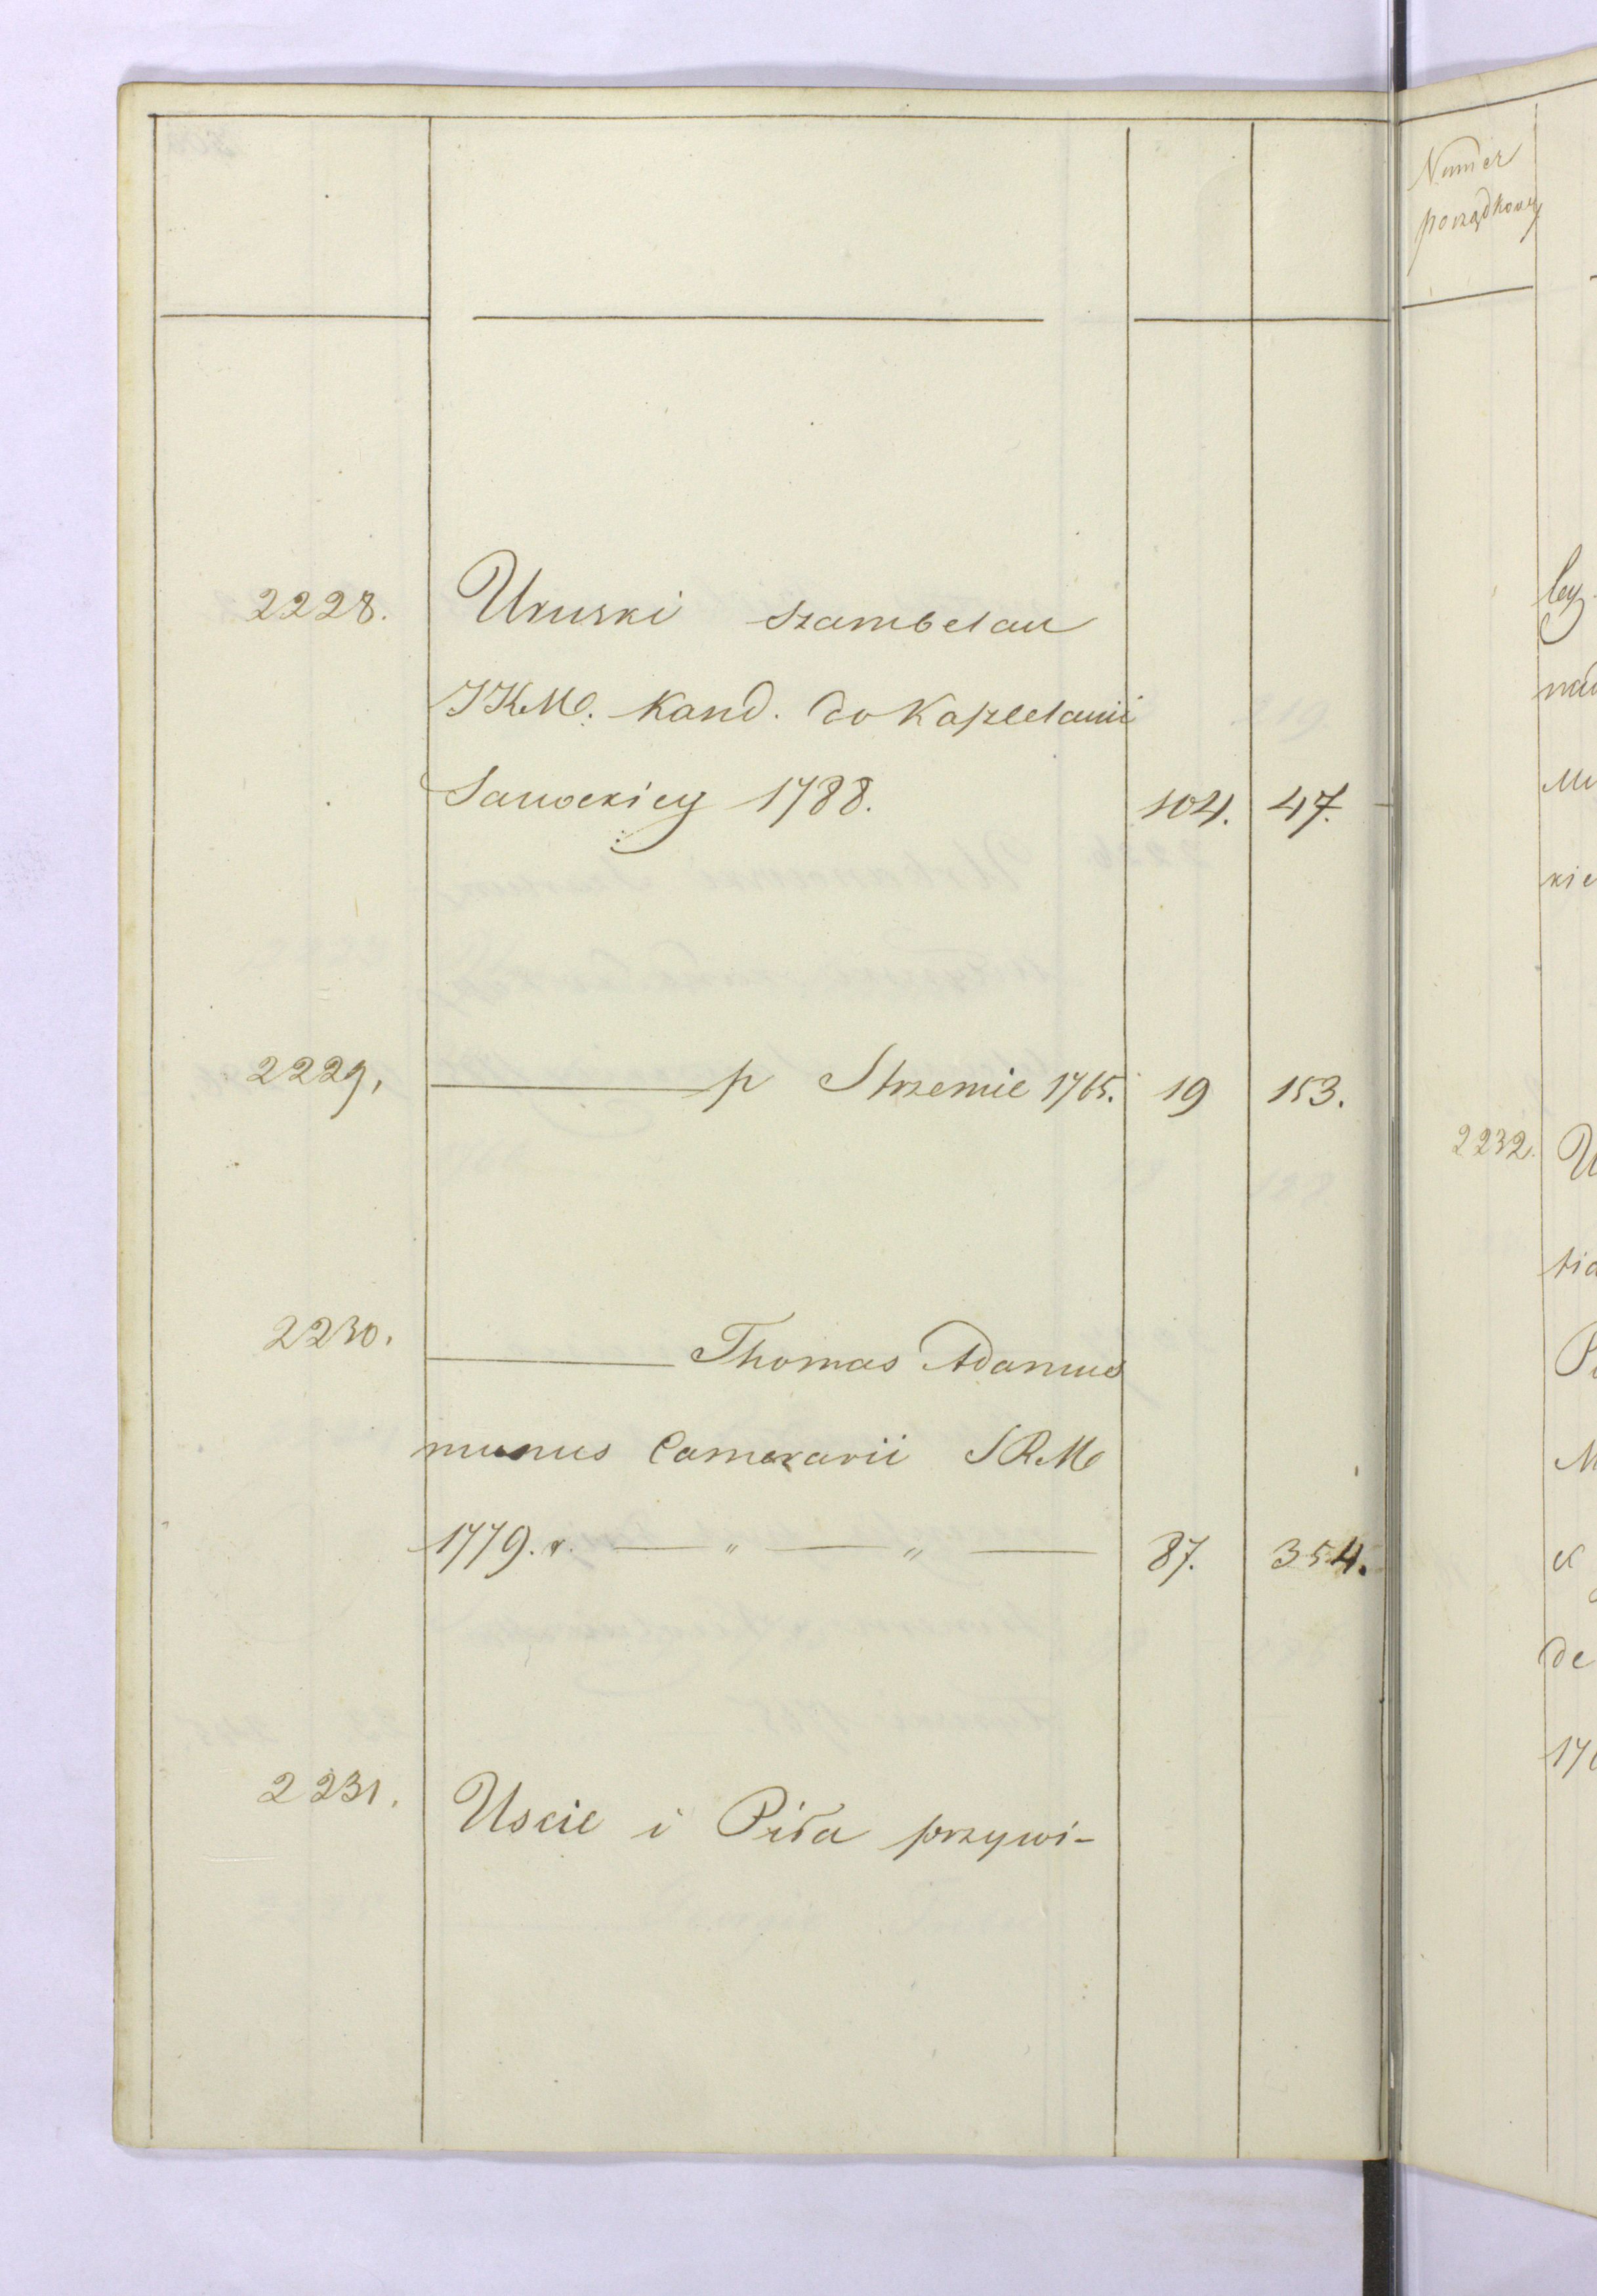 2228. Uruski szambelan
JKM. Kand. do Kasztelanii
Sanockiey 1788. 104. 47.
2229. ——— p Strzemie 1765. 19 153.
2230. ——— Thomas Adamus
munus Camerarii SRM
1779. r. — „ — „ — 87. 354.
2231. Uscie i Piła przywi-
Numer
porządkowy
ley
2232. U